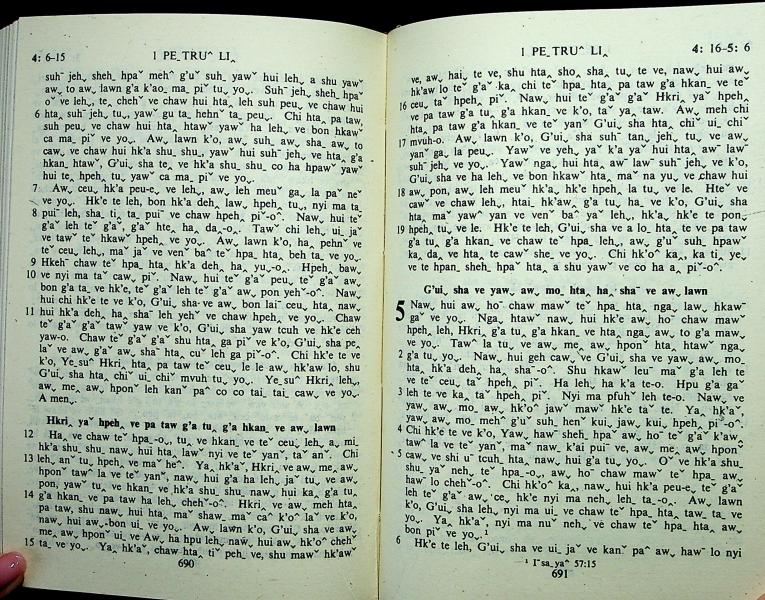 4: 6-15 1 PE_TRUˆ LI_
suh¯ jeh_ sheh_ hpaˇ mehˆ g'uˇ suh_ yawˇ hui leh_ a shu yawˇ
aw_ to aw_ lawn g'a k'ao_ ma_ piˇ tu_ yo_. Suh¯ jeh_ sheh_ hpaˇ
oˇ ve leh_, te_ chehˇ ve chaw hui hta_ leh suh peu_ ve chaw hui
6 hta_ suh¯ jeh_ tu_, yawˇ gu ta_ hehnˇ ta_ peu_. Chi hta_ pa taw,
suh peu_ ve chaw hui hta_ htawˇ yawˇ ha leh_ ve bon hkaw
ca ma_ piˇ ve yo_. Aw_ lawn k'o, aw_ suh_ aw_ sha_ aw_ to
caw_ ve chaw hui hk'a shu_ shu_, yawˇ hui suh¯ jeh_ ve hta_ g'a
hkan_ htawˇ, G'ui_ sha te_ ve hk'a shu_ shu_ co ha hpawˇ yawˇ
hui te_ hpeh_ tu_ yawˇ ca ma_ piˇ ve yo_.
7 Aw_ ceu_ hk'a peu-e_ ve leh_, aw_ leh meuˇ ga_ la paˇ neˇ
ve yo_. Hk'e te leh, bon hk'a deh_ law_ hpeh_ tu_, nyi ma ta_
8 puiˇ leh_ sha_ ti_ ta_ puiˇ ve chaw hpeh_ piˇ-oˆ. Naw_ hui teˇ
g'aˇ leh teˇ g'aˇ, g'aˇ hte_ ha_ da_-o_. Tawˇ chi leh_ ui_ jaˇ
ve tawˇ teˇ hkawˇ hpeh_ ve yo_. Aw_ lawn k'o, ha_ pehnˇ ve
teˇ ceu_ leh_, maˇ ja ve venˇ baˆ teˇ hpa_ hta_ beh ta_ ve yo_.
9 Hkeh¯ chaw teˇ hpa_ hta_ hk'a deh_ ha_ yu_-o_. Hpeh_ baw_
10 ve nyi ma taˇ caw_ piˇ. Naw_ hui teˇ g'aˇ peu_ teˇ g'aˇ aw_
bon g'a ta_ ve hk'e, teˇ g'aˇ leh teˇ g'aˇ aw_ pon yehˇ-oˆ. Naw_
hui chi hk'e te ve k'o, G'ui_ sha-ve aw_ bon lai¯ ceu_ hta_ naw_
11 hui hk'a deh_ ha_ sha¯ leh yehˇ ve chaw hpeh_ ve yo_. Chaw
teˇ g'aˇ g'aˇ tawˇ yaw ve k'o, G'ui_ sha yaw tcuh ve hk'e ceh
yaw-o. Chaw teˇ g'aˇ g'aˇ shu hta_ ga piˇ ve k'o, G'ui_ sha pe_
laˇ ve aw_ g'aˇ aw_ sha¯ hta_ cuˇ leh ga piˇ-oˆ. Chi hk'e te ve
k'o, Ye_suˆ Hkri_ hta_ pa taw teˇ ceu_ le le aw_ hk'aw lo, shu
G'ui_ sha hta_ chiˇ ui_ chiˇ mvuh tu_ yo_. Ye_suˆ Hkri_ leh_,
aw_ me_ aw_ hponˇ leh kanˇ paˆ co co tai_ tai_ caw_ ve yo_.
A men_.
Hkri_ yaˇ hpeh_ ve pa taw g'a tu_ g'a hkan_ ve aw_ lawn
12 Ha_ ve chaw teˇ hpa_-o_, tu_ ve hkan_ ve teˇ ceu_ leh_ a_ mi_
hk'a shu_ shu_ naw_ hui hta_ lawˇ nyi ve teˇ yanˇ, taˇ anˇ. Chi
13 leh_ an¯ tu_ hpeh_ ve maˇ heˆ. Ya_ hk'aˇ, Hkri_ ve aw_ me_ aw_
hponˇ tawˆ la ve teˇ yanˇ, naw_ hui g'a ha leh_ jaˇ tu_ ve aw_
pon, yawˇ tu_ ve hkan_ ve hk'a shu_ shu_ naw_ hui ka_ g'a tu_
14 g'a hkan_ ve pa taw ha leh_ chehˇ-oˆ. Hkri_ ve aw_ meh hta_
pa taw, shu naw_ hui hta_ maˇ shaw_ maˇ caˆ k'oˇ laˇ ve k'o,
naw_ hui aw_-bon ui_ ve yo_. Aw_ lawn k'o, G'ui_ sha ve aw_
me_ aw_ hponˇ ui_ ve Aw_ ha hpu leh_ naw_ hui aw_ hk'oˆ chehˇ
15 ta_ ve yo_. Ya_ hk'aˇ, chaw hta_ tiˇ peh_ ve, shu mawˇ hk'awˇ
690
1 PE_TRUˆ LI_ 4: 16-5: 6
ve, aw_ hai_ te ve, shu hta_ sho_ sha_ tu_ te ve, naw_ hui aw_
hk'aw lo teˇ g'aˇ ka_ chi teˇ hpa_ hta_ pa taw g'a hkan_ ve teˇ
16 ceu_ taˇ hpeh_ piˇ. Naw_ hui te g'aˇ g'aˇ Hkri_ yaˇ hpeh_
ve pa taw g'a tu_ g'a hkan_ ve k'o, taˇ ya_ taw. Aw_ meh chi
hta_ pa taw g'a hkan_ ve teˇ yanˇ G'ui_ sha hta_ chiˇ ui_ chiˇ
17 mvuh-o. Aw_ lawn k'o, G'ui_ sha suh¯ tan_ jeh_ tu_ ve aw_
yanˇ ga_ la peu_. Yawˇ ve yeh_ yaˇ k'a yaˇ hui hta_ awˇ lawˇ
suh¯ jeh_ ve yo_. Yawˇ nga_ hui hta_ awˇ lawˇ suh¯ jeh_ ve k'o,
G'ui_ sha ve ha leh_ ve bon hkawˇ hta_ maˇ na yu_ ve chaw hui
18 aw_ pon_ aw_ leh meuˇ hk'a_ hk'e hpeh_ la tu_ ve le. Hteˇ ve
cawˇ ve chaw leh_, htai_ hk'aw_ g'a tu_ ha_ ve k'o, G'ui_ sha
hta_ maˇ yawˆ yan ve venˇ baˆ yaˇ leh_, hk'a_ hk'e te pon_
19 hpeh_ tu_ ve le. Hk'e te leh, G'ui_ sha ve a lo_ hta_ te ve pa taw
g'a tu_ g'a hkan_ ve chaw teˇ hpa_ leh_, aw_ g'uˇ suh_ hpawˇ
ka_ da_ ve hta_ te cawˇ she_ ve yo_. Chi hk'oˆ ka_, ka ti_ ye_
ve te hpan_ sheh_ hpaˇ hta_ a shu yawˇ ve co ha a_ piˇ-oˆ.
G'ui_ sha ve yaw_ aw_ mo_ hta_ ha_ sha¯ ve aw_ lawn
5 Naw_ hui aw_ ho¯ chaw mawˇ teˇ hpa_ hta_ nga_ law_ hkaw¯
gaˇ ve yo_. Nga_ htawˇ naw_ hui hk'e aw_ hoˆ chaw mawˇ
hpeh_ leh, Hkri_ g'a tu_ g'a hkan_ ve hta_ nga_ aw_ to g'a maw_
ve yo_. Tawˆ la tu_ ve aw_ me_ aw_ hponˇ hta_ htawˇ nga_
2 g'a tu_ yo_. Naw_ hui geh caw_ ve G'ui_ sha ve yaw_ aw_ mo_
hta_ hk'a deh_ ha_ sha¯-oˆ. Shu hkawˇ leuˇ maˇ g'a leh te
ve teˇ ceu_ taˇ hpeh_ piˇ. Ha leh_ ha_ k'a te-o. Hpu g'a gaˇ
3 leh te ve ka_ taˇ hpeh_ piˇ. Nyi ma pfuhˇ leh te-o. Naw_ ve
yaw_ aw_ mo_ aw_ hk'oˆ jawˇ mawˇ hk'e taˇ te. Ya_ hk'aˇ,
yaw_ aw_ mo_ mehˇ g'uˇ suh_ henˇ kui_ jaw_ kui_ hpeh_ piˇ-oˆ.
4 Chi hk'e te ve k'o, Yaw_ haw¯ sheh_ hpaˇ aw_ ho¯ teˇ g'aˇ k'aw_
tawˆ la ve teˇ yanˇ, maˇ naw_ k'ai puiˇ ve, aw_ me_ aw_ hponˇ
5 caw_ ve shi uˇ tcuh_ hta_ naw_ hui g'a tu_ yo_. Oˇ ve hk'a shu_
shu_ yaˇ neh_ teˇ hpa_-o_, aw_ ho¯ chaw mawˇ teˇ hpa_ hta_
hawˇ lo chehˇ-oˆ. Chi hk'oˆ ka_, naw_ hui hk'a peu-e_ teˇ g'aˇ
leh teˇ g'aˇ aw_ ce_ hk'e nyi ma neh_ leh_ ta_-o_. Aw_ lawn
k'o, G'ui_ sha leh_ nyi ma ui_ ve chaw teˇ hpa_ hta_ taw_ ta_ ve
yo_. Ya_ hk'aˇ, nyi ma nuˇ neh_ ve chaw teˇ hpa_ hta_ aw_
bon piˇ ve yo_.¹
6 Hk'e te leh, G'ui_ sha ve ui_ jaˇ ve kanˇ paˆ aw_ hawˇ lo nyi
¹ Iˇsa_yaˆ 57:15
691